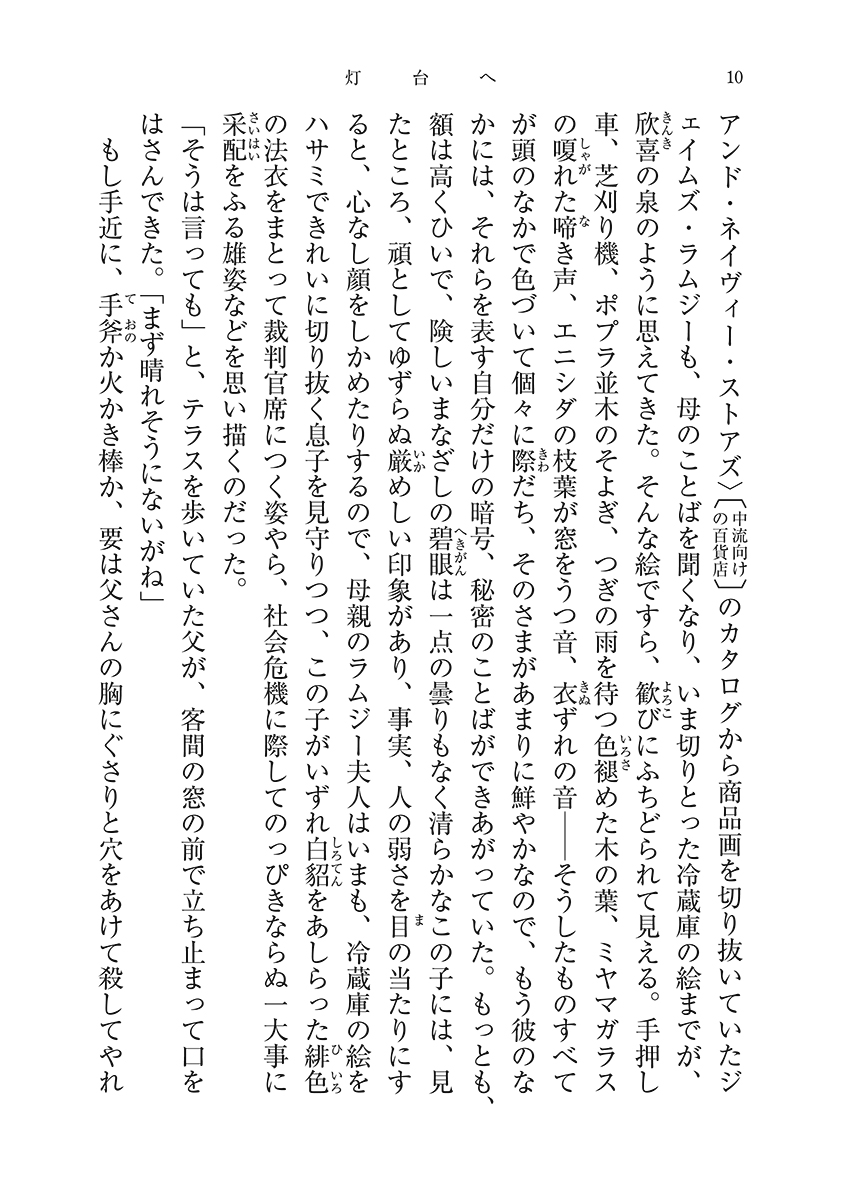 灯台へ
10
アンド・ネイヴィー・ストアズ〉〔中流向けの百貨店〕のカタログから商品画を切り抜いていたジ
ェイムズ・ラムジーも、母のことばを聞くなり、いま切りとった冷蔵庫の絵までが、
欣喜の泉のように思えてきた。そんな絵ですら、歓びにふちどられて見える。手押し
車、芝刈り機、ポプラ並木のそよぎ、つぎの雨を待つ色褪めた木の葉、ミヤマガラス
の嗄れた啼き声、エニシダの枝葉が窓をうつ音、衣ずれの音――そうしたものすべて
が頭のなかで色づいて個々に際だち、そのさまがあまりに鮮やかなので、もう彼のな
かには、それらを表す自分だけの暗号、秘密のことばができあがっていた。もっとも、
額は高くひいで、険しいまなざしの碧眼は一点の曇りもなく清らかなこの子には、見
たところ、頑としてゆずらぬ厳めしい印象があり、事実、人の弱さを目の当たりにす
ると、心なし顔をしかめたりするので、母親のラムジー夫人はいまも、冷蔵庫の絵を
ハサミできれいに切り抜く息子を見守りつつ、この子がいずれ白貂をあしらった緋色
の法衣をまとって裁判官席につく姿やら、社会危機に際してのっぴきならぬ一大事に
采配をふる雄姿などを思い描くのだった。
「そうは言っても」と、テラスを歩いていた父が、客間の窓の前で立ち止まって口を
はさんできた。「まず晴れそうにないがね」
もし手近に、手斧か火かき棒か、要は父さんの胸にぐさりと穴をあけて殺してやれ